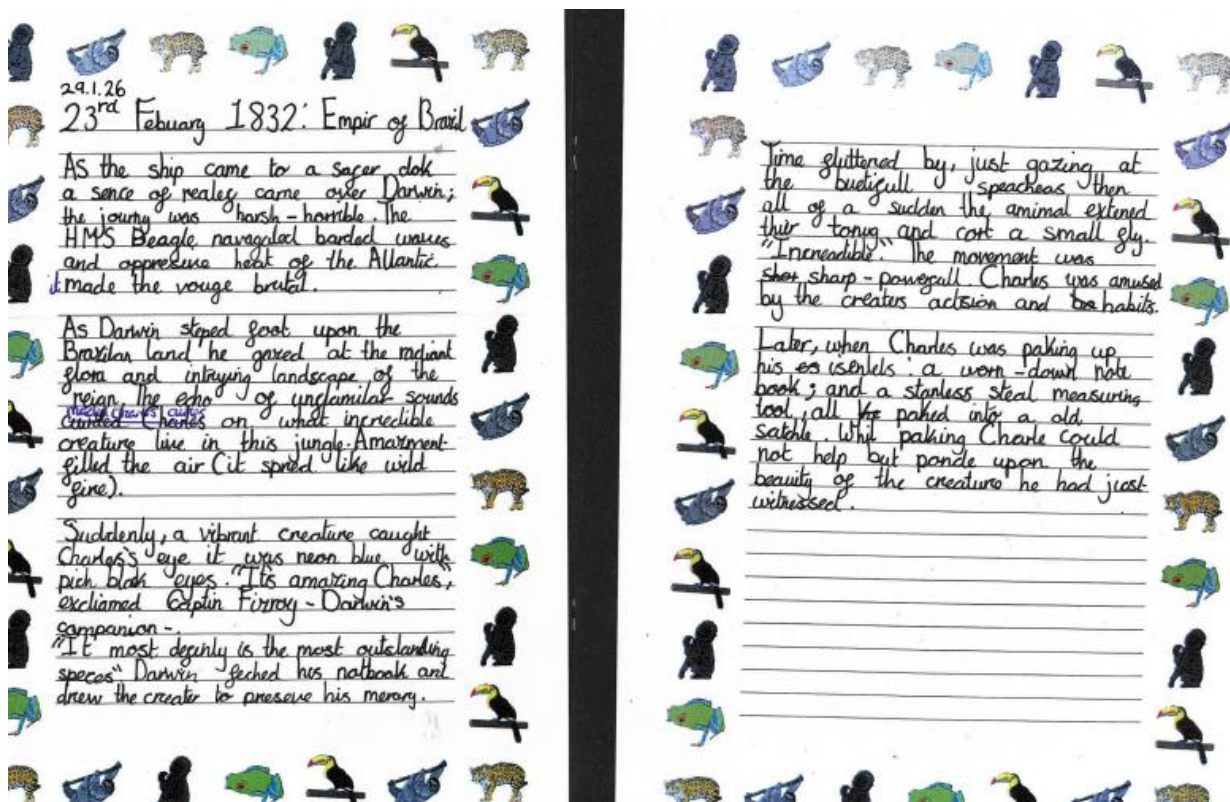 29.1.26
23rd Febuary 1832: Empir of Brazil
As the ship came to a safer dok
a sence of realey came over Darwin;
the journy was harsh - horrible. The
HMS Beagle navagated barded waves
and oppresive heat of the Atlantic.
it made the vouge brutal.
As Darwin steped foot upon the
Brazilan land he gazed at the radiant
flora and intrying landscape of the
reign, the echo of unfamilar sounds
made charles curios
Charles on what incredible
creature live in this jungle. Amazment
filled the air (it spred like wild
fire).
Suddenly, a vibrant creature caught
Charles's eye it was neon blue with
pich blak eyes. "It's amazing Charles",
excliamed Captin Fizroy - Darwin's
companion -.
"It most definly is the most outstanding
speces" Darwin feched his notbook and
drew the creater to preseve his memory.
Time fluttered by, just gazing at
the buetifull speacheas then
all of a sudden the amimal extened
thier tonug and cort a small fly.
"Increadible." The movement was
sharp - powerfull. Charles was amused
by the creaters actision and habits.
Later, when Charles was paking up
his isentels: a worn-down note
book; and a stanless steal measuring
tool, all paked into a old
satchle. Whil paking Charle could
not help but ponde upon the
beauity of the creature he had just
witnessed.